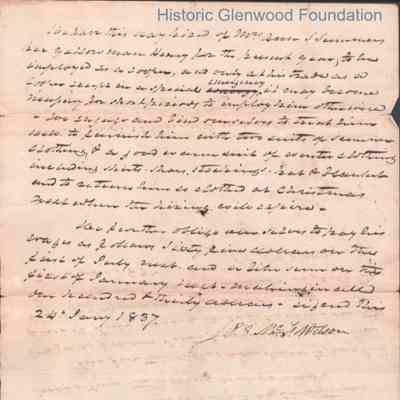 Historic Glenwood Foundation
We have this day hired of Mrs Ann S Summers
her negro man Henry for the present year, to be
employed as a cooper, and only at his trade as a
cooper except in a special emergency, it may become
necessary for short periods to employ him otherwise
We engage and bind ourselves to treat him
well to furnish him with two suits of summer
clothing, & a good warm suit of winter clothing
including shirts, shoes, stockings, hat & blanket
and to return him so clothed at Christmas
next when the hiring will expire.
We further oblige ourselves to pay his
wages as follows Sixty five dollars on the
first of July next and a like sum on the
first of January next - making in all
one hundred & thirty dollars - signed this
24th Jany 1837
Wilson